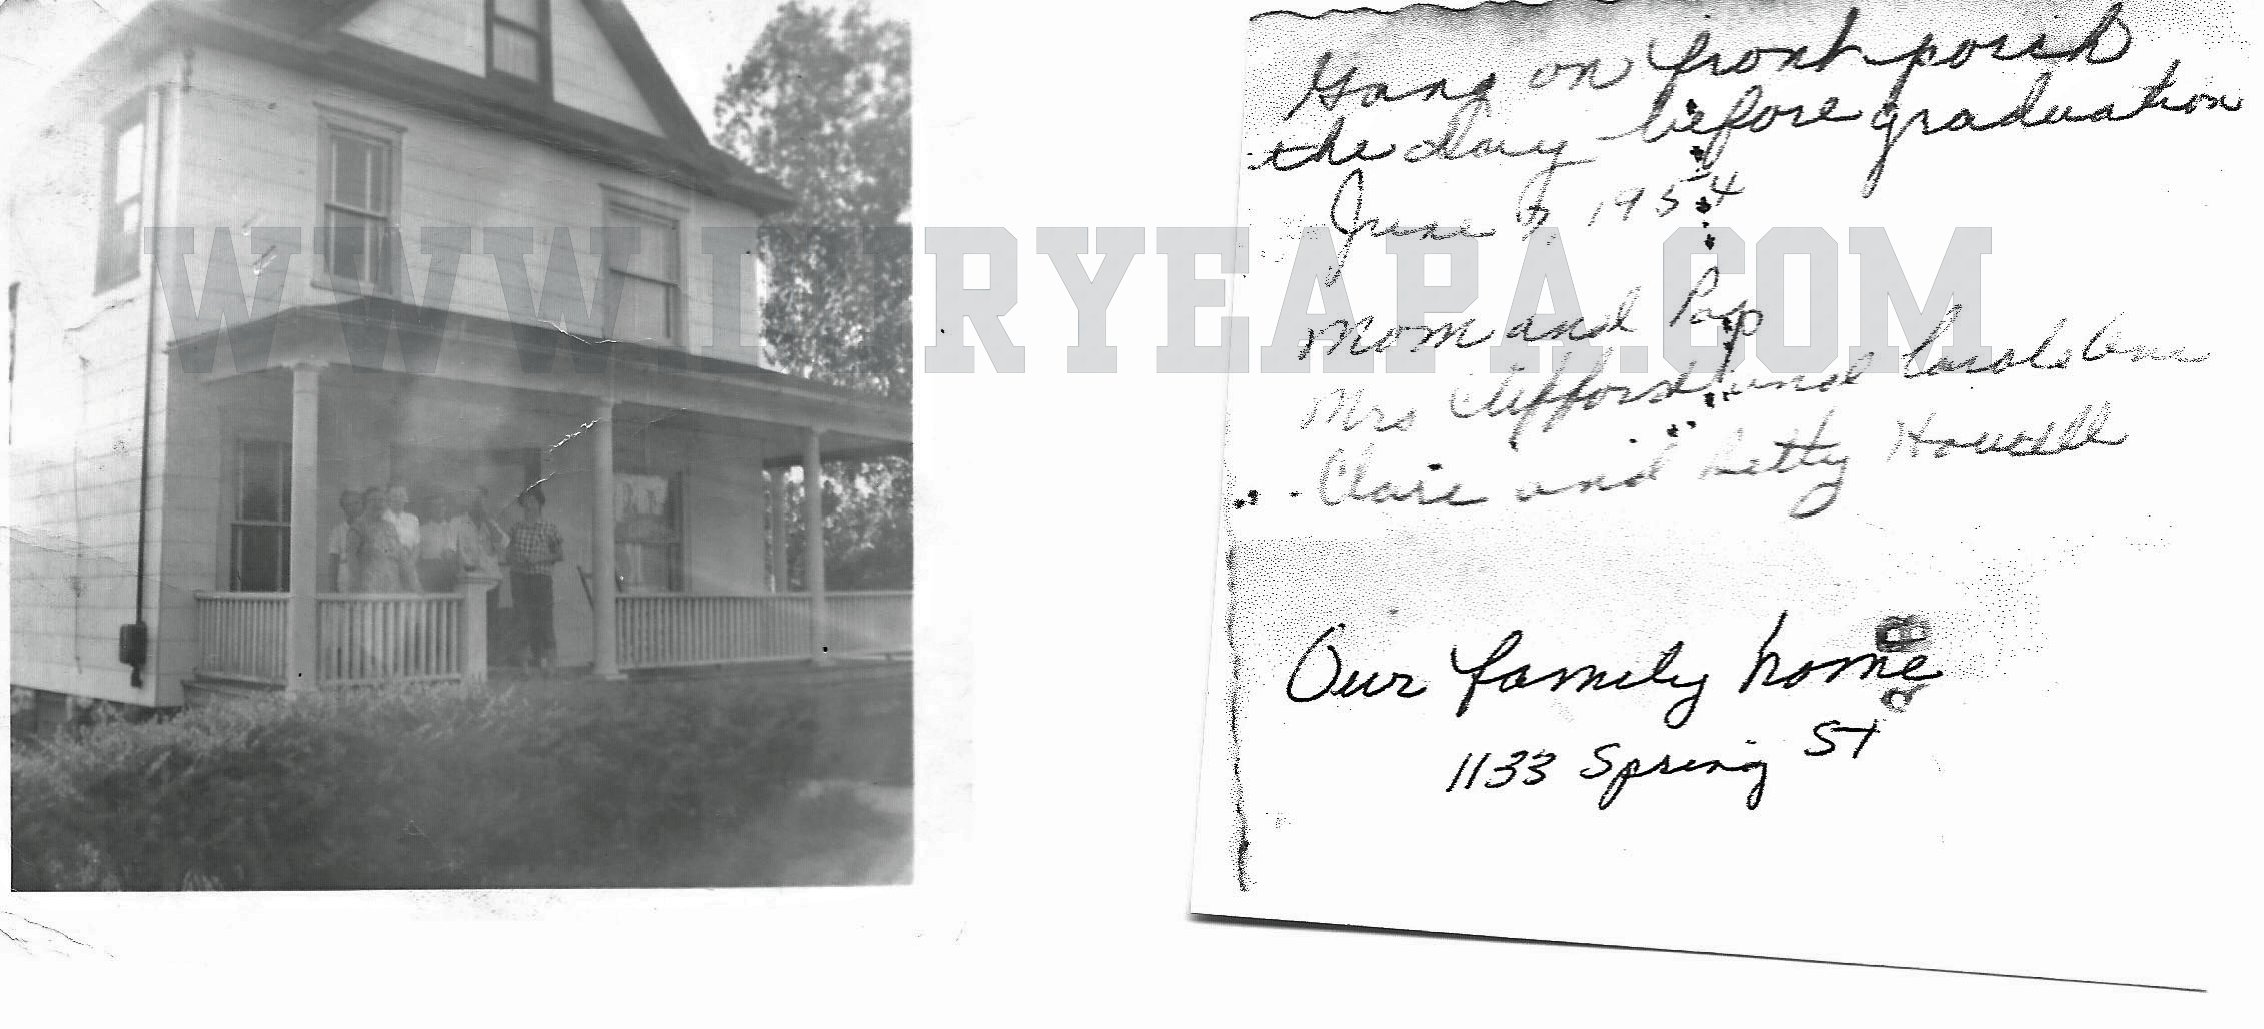 WWW.DURYEAPA.COM
Gang on front porch
the day before graduation
June 1954
Mom and Pop
Mrs Clifford and Carole Ann
Claire and Betty Howell
Our family home
1133 Spring St